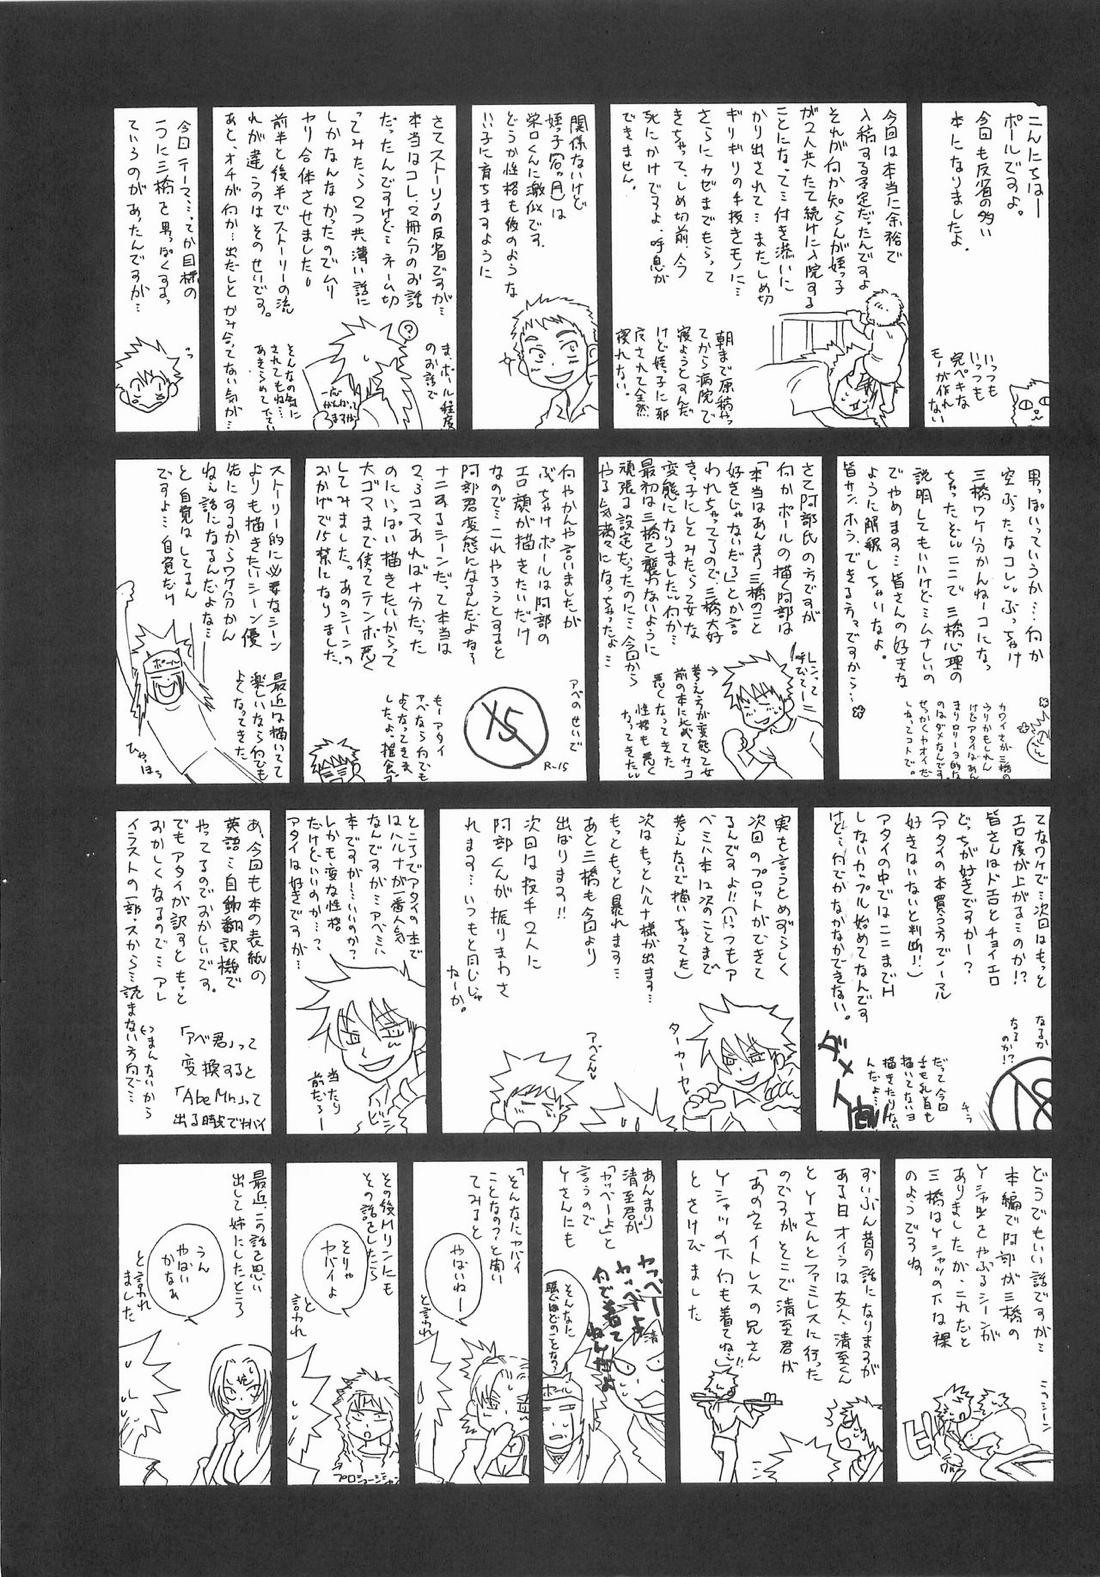 こんにちはー
ポールですよ。
今回も反省の多い
本になりましたよ。
いっつも
いっつも
完ペキな
モノが作れ
ない
今回は本当に余裕で
入稿する予定だたんですよ
それが何か知らんが姪っ子
が2人共たて続けに入院する
ことになって…付き添いに
かり出されて…またしめ切
ギリギリの手抜きモノに…
さらにカゼまでもらって
きちゃって、しめ切前、今
死にかけですよ。呼吸が
できません。
朝まで原稿やっ
てから病院で
寝ようとすんだ
けど姪っ子に邪
魔されて全然
寝れない。
関係ないけど
姪っ子
栄口くんに激似です。
どうか性格も彼のような
いい子に育ちますように
さてストーリーの反省ですが…
本当はコレ、2冊分のお話
だったんですけど…ネーム切
ってみたら2つ共薄い話に
しかなんなかったのでムリ
ヤリ合体させました。
前半と後半でストーリーの流
れが違うのはそのせいです。
あと、オチが何か…出だしとかみ合ってない気が…
?
ま、ポール程度
のお話で
そんなの気に
されてもね…
あきらめて下さい
一応
がんばって
ますが
今回テーマ…ってか目標の
一つに三橋を男っぽくするっ
ていうのがあったんですが…
男っぽいっていうか…何か
空ぶったなコレ。ぶっちゃけ
三橋ワケ分かんねーコになっ
ちゃったぞ。ここで三橋心理の
説明してもいいけど…ムナしいの
でやめます…皆さんの好きな
ように解釈しちゃいなよ。
皆サン、ホラ、できる方々ですから…
カワイさが三橋の
ウリかもしれん
けどアタイはあん
まりロリータ的な
のはダメなんです。
せっかくオオイだ
しねってコトで。
さて阿部氏の方ですが
何かポールの描く阿部は
「本当はあんまり三橋のこと
好きじゃないだろ」とか言
われちゃってるので三橋大好
きっ子にしてみたらって女な
変態になりました…何か…
最初は三橋を襲わないように
頑張る設定だったのに…今回から
やる気満々になっちゃったよ…
レンって
呼びてー!
考え方が変態乙女
前の本に比べてカッコ
悪くなってきた
性格も悪く
なってきたし
何やかんや言いましたが
ぶっちゃけポールは阿部の
エロ顔が描きたいだけ
なので…これやろうとすると
阿部君変態になるんだよねぇ
ナニするシーンだって本当は
2、3コマあれば十分だった
のにいっぱい描きたいからって
大ゴマまで使ってテンポ悪く
してみました。あのシーンの
おかげで15禁になりました。
アベのせいで
15
R-15
もーアタイ
アベなら何でも
よくなってきま
したよ。雑食す
ストーリー的に必要なシーン
よりも描きたいシーン優
先にするからワケ分かん
ねぇ話になるんだよな…
と自覚はしてるん
ですよ…自覚だけ
最近は描いてて
楽しいなら何でも
よくなってきた
ポール
ひゃっほぅ
てなワケで…次回はもっと
エロ度が上がる…のか!?
皆さんはドエロとチョイエロ
どっちが好きですかー?
(アタイの本買う方でノーマル
好きはいないと判断!!)
アタイの中ではここまでH
しないカップル始めてなんです
けど…何でかなかなかできない。
なるか
なるの
のか!?
18
だって今回
チチも乳首も
描いてないヨ
描きたりない
んだよ…
実を言うとめずらしく
次回のプロットができて
るんですよ!!(いつもア
ベミハ本は次のことまで
考えないで描いちゃってた)
次はもっとハルナ様が出ます…
もっともっと暴れます…
あと三橋も今回より
出ばります!!
次回は投手2人に
阿部くんが振りまわさ
れます…いつもと同じじゃ
ねーか。
アベくん
ターカーヤ
ところでアタイの本で
はハルナが一番人気
なんですが…アベミハ
本ですが…いいのか?
しかも変な性格
だけどいいのか…?
アタイは好きですが…
当たり
前だろー
あ、今回も本の表紙の
英語…自動翻訳機で
やってるのでおかしいです。
でもアタイが訳すともっと
おかしくなるので…アレ
イラストの一部っスから…読まない方向で…
つまんないから
「アベ君」って
変換すると
「Abe Mr」って
出る時点でヤバイ
どうでもいい話ですが…
本編で阿部が三橋の
Yシャツをやぶるシーンが
ありましたが、これだと
三橋はYシャツの下は裸
のようですね
ビリ
ずいぶん昔の話になりますが
ある日オイラは友人・清至くん
とYさんとファミレスに行った
のですがそこで清至君が
「あのウェイトレスの兄さん
Yシャツの下何も着てねぇ!!」
とさけびました
あんまり
清至君が
「ヤッベー」と
言うので
Yさんにも
ヤッベー
ヤッベよ
何で着て
ねぇんだよ
清
そんなに
騒ぐほどのことなの?
ポール
「そんなにヤバイ
ことなの?」と聞い
てみると
やばいねー
と言われ
その後Mリンにも
その話をしたら
そりゃ
ヤバイよ
と
言われ
最近、この話を思い
出して姉にしたところ
うん
やばい
かなぁ
と言われ
ました
姉